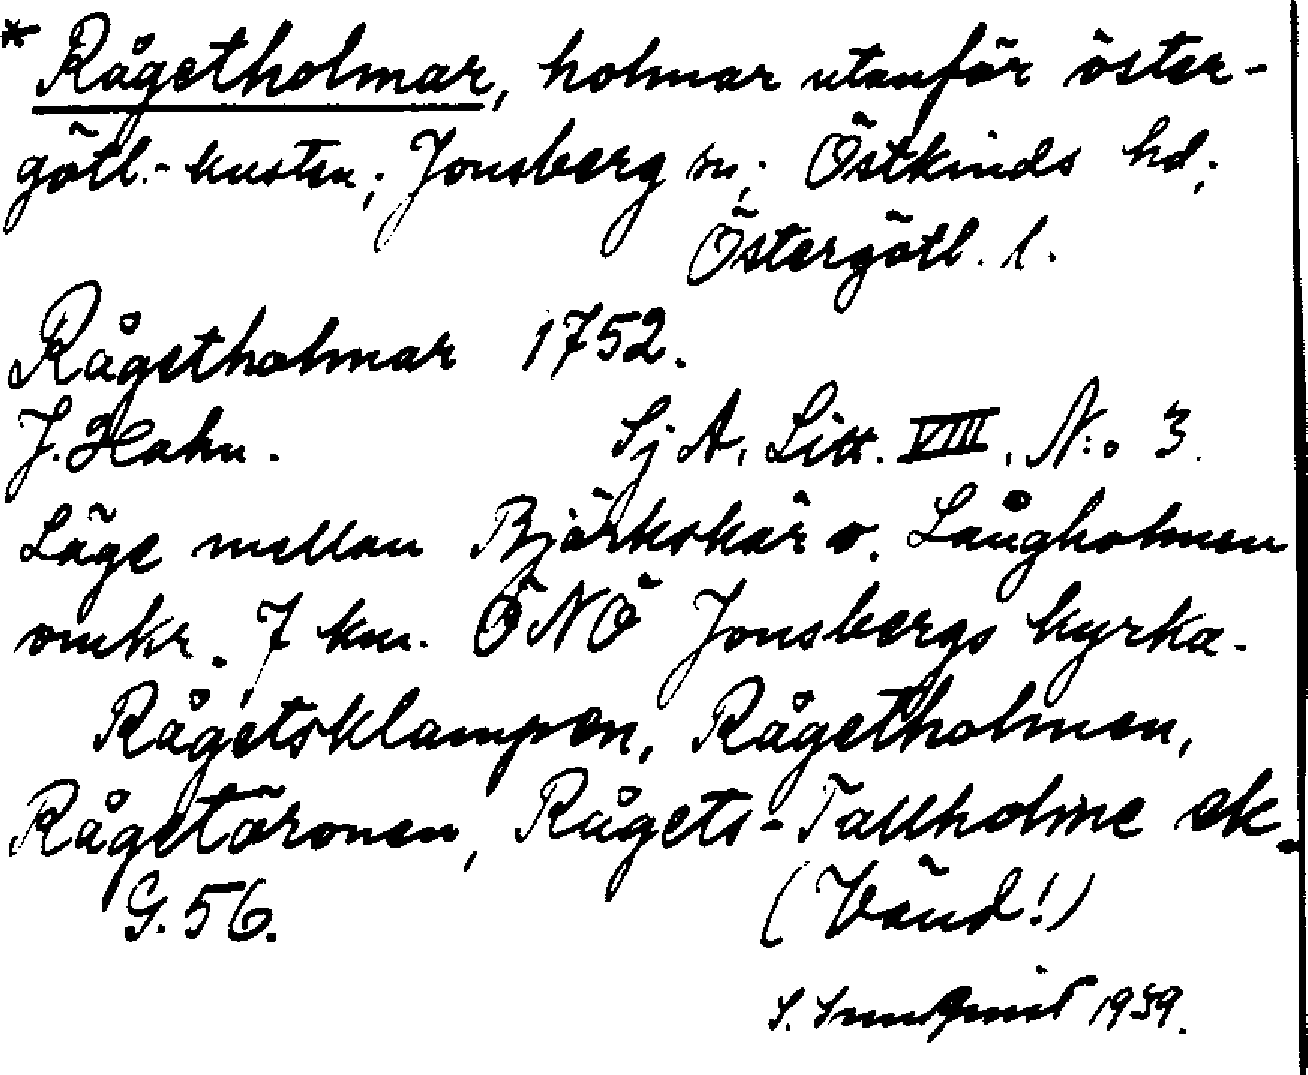 * Rågetholmar, holmar utanför öster-
götl.-kusten; Jonsberg sn; Östkinds hd;
Östergötl. l.
Rågetholmar 1752.
J. Hahn. SjA, Litt. VIII, N:o 3.
Läge mellan Björkskär o. Långholmen
omkr. 7 km. ÖNÖ Jonsbergs kyrka.
Rågetsklampen, Rågetholmen,
Rågetöronen, Rågets-Tallholme ek.
G. 56. (Vänd!)
S. 1939.